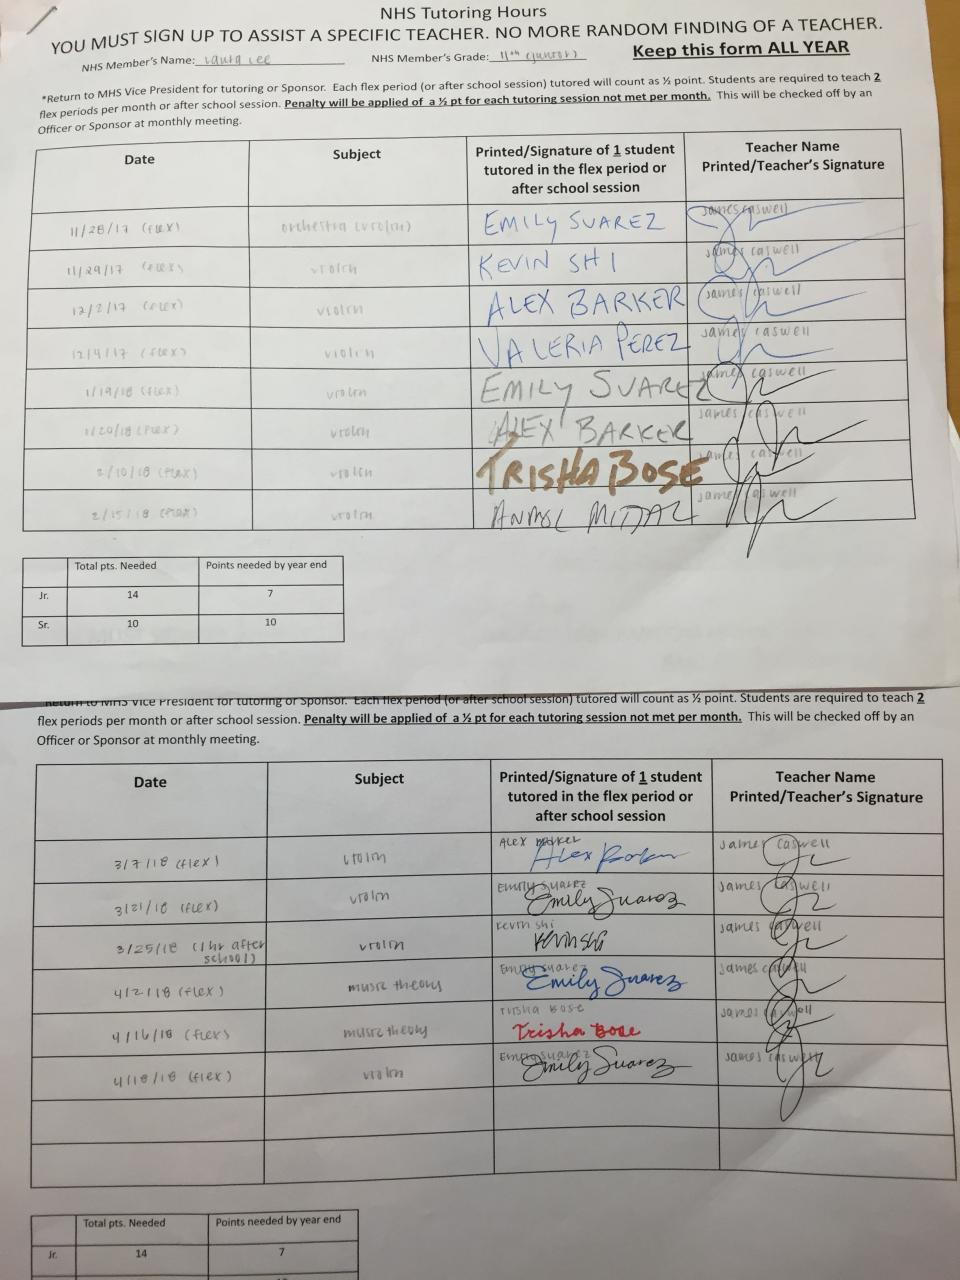 NHS Tutoring Hours
YOU MUST SIGN UP TO ASSIST A SPECIFIC TEACHER. NO MORE RANDOM FINDING OF A TEACHER.
NHS Member's Name: Laura Lee NHS Member's Grade: 11th (junior) Keep this form ALL YEAR
*Return to MHS Vice President for tutoring or Sponsor. Each flex period (or after school session) tutored will count as ½ point. Students are required to teach 2
flex periods per month or after school session. Penalty will be applied of a ½ pt for each tutoring session not met per month. This will be checked off by an
Officer or Sponsor at monthly meeting.
Date Subject Printed/Signature of 1 student Teacher Name
tutored in the flex period or Printed/Teacher's Signature
after school session
11/28/17 (flex) orchestra (violin) EMILY SUAREZ james caswell
11/29/17 (flex) violin KEVIN SHI james caswell
12/2/17 (flex) violin ALEX BARKER james caswell
12/4/17 (flex) violin VALERIA PEREZ james caswell
1/19/18 (flex) violin EMILY SUAREZ james caswell
1/20/18 (flex) violin ALEX BARKER james caswell
2/10/18 (flex) violin TRISHA BOSE james caswell
2/15/18 (flex) violin ANMOL MITTAL james caswell
Total pts. Needed Points needed by year end
Jr. 14 7
Sr. 10 10
Return to MHS Vice President for tutoring or Sponsor. Each flex period (or after school session) tutored will count as ½ point. Students are required to teach 2
flex periods per month or after school session. Penalty will be applied of a ½ pt for each tutoring session not met per month. This will be checked off by an
Officer or Sponsor at monthly meeting.
Date Subject Printed/Signature of 1 student Teacher Name
tutored in the flex period or Printed/Teacher's Signature
after school session
3/7/18 (flex) violin Alex Barker Alex Barker james caswell
3/21/18 (flex) violin Emily Suarez Emily Suarez james caswell
3/25/18 (1 hr after school) violin Kevin Shi Kevin Shi james caswell
4/2/18 (flex) music theory Emily Suarez Emily Suarez james caswell
4/16/18 (flex) music theory Trisha Bose Trisha Bose james caswell
4/18/18 (flex) violin Emily Suarez Emily Suarez james caswell
Total pts. Needed Points needed by year end
Jr. 14 7